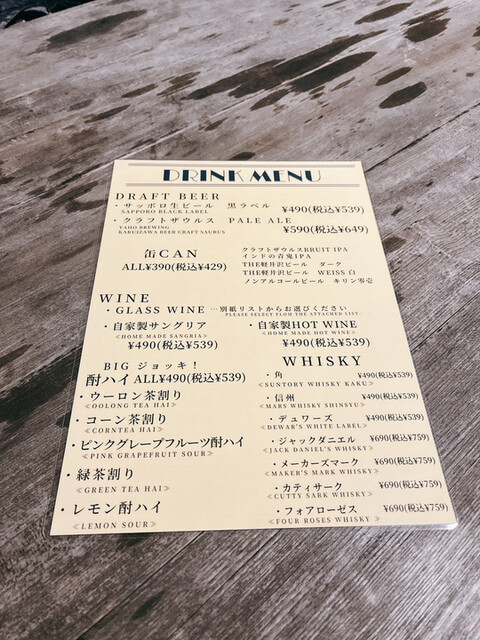 DRINK MENU
DRAFT BEER
・サッポロ生ビール 黒ラベル ¥490(税込¥539)
SAPPORO BLACK LABEL
・クラフトザウルス PALE ALE ¥590(税込¥649)
YAHO BREWING
KARUIZAWA BEER CRAFT SAURUS
缶CAN
ALL¥390(税込¥429)
クラフトザウルスBRUIT IPA
インドの青鬼IPA
THE軽井沢ビール ダーク
THE軽井沢ビール WEISS 白
ノンアルコールビール キリン零壱
WINE
・GLASS WINE …別紙リストからお選びください
PLEASE SELECT FLOM THE ATTACHED LIST.
・自家製サングリア
<HOME MADE SANGRIA>
¥490(税込¥539)
・自家製HOT WINE
<HOME MADE HOT WINE>
¥490(税込¥539)
BIG ジョッキ！
酎ハイ ALL¥490(税込¥539)
・ウーロン茶割り
<OOLONG TEA HAI>
・コーン茶割り
<CORNTEA HAI>
・ピンクグレープフルーツ酎ハイ
<PINK GRAPEFRUIT SOUR>
・緑茶割り
<GREEN TEA HAI>
・レモン酎ハイ
<LEMON SOUR>
WHISKY
・角 ¥490(税込¥539)
<SUNTORY WHISKY KAKU>
・信州 ¥490(税込¥539)
<MARS WHISKY SHINSYU>
・デュワーズ ¥490(税込¥539)
<DEWAR'S WHITE LABEL>
・ジャックダニエル ¥690(税込¥759)
<JACK DANIEL'S WHISKY>
・メーカーズマーク ¥690(税込¥759)
<MAKER'S MARK WHISKY>
・カティサーク ¥690(税込¥759)
<CUTTY SARK WHISKY>
・フォアローゼス ¥690(税込¥759)
<FOUR ROSES WHISKY>